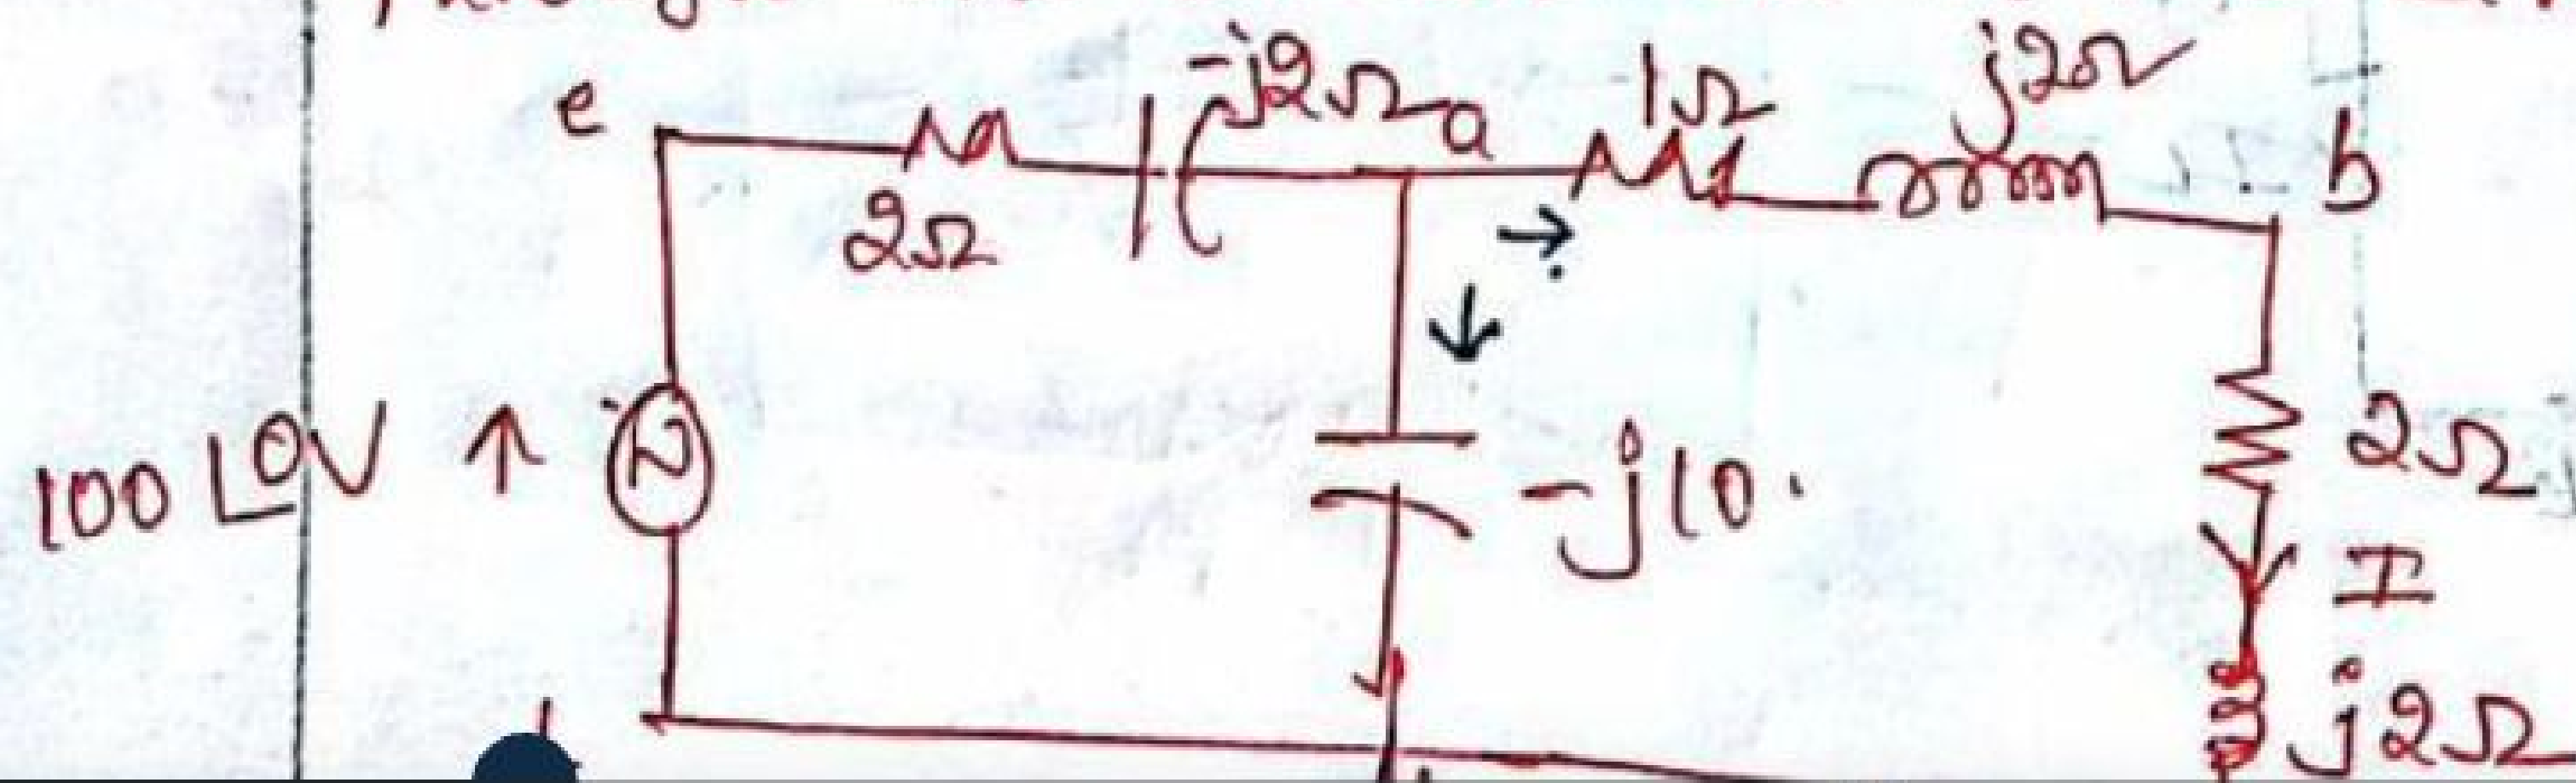 e
-j2Ω
a
1Ω
j2Ω
b
2Ω
100∠0V ↑
-j10.
2Ω
I
j2Ω